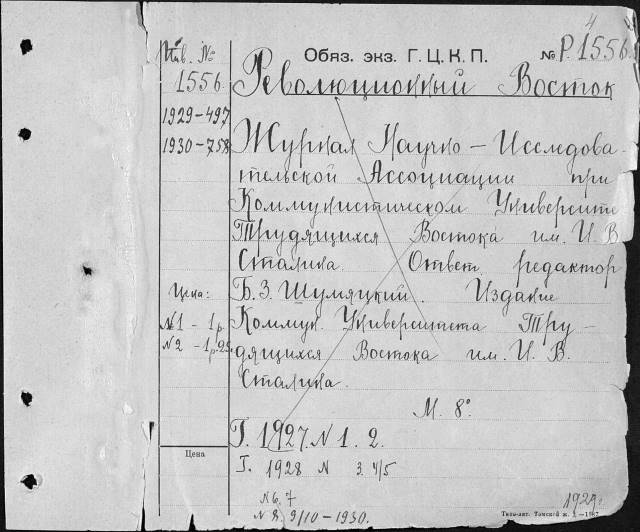 4
Инв. №
Обяз. экз. Г.Ц.К.П. № Р.1556
1556
Революционный Восток
1929–497
1930–758
Журнал Научно – Исследова-
тельской Ассоциации при
Коммунистическом Университе
Трудящихся Востока им. И. В.
Сталина. Ответ. редактор
Цена: Б. З. Шумяцкий. Издание
№1 – 1р. Коммун. Университета Тру –
№2 – 1р.25 дящихся Востока им. И. В.
Сталина.
М. 8°
Г. 1927. N 1. 2.
Цена
Г. 1928 N 3. 4/5
N 6. 7
N 8. 9/10 – 1930.
1929г.
Типо-лит. Томской ж.